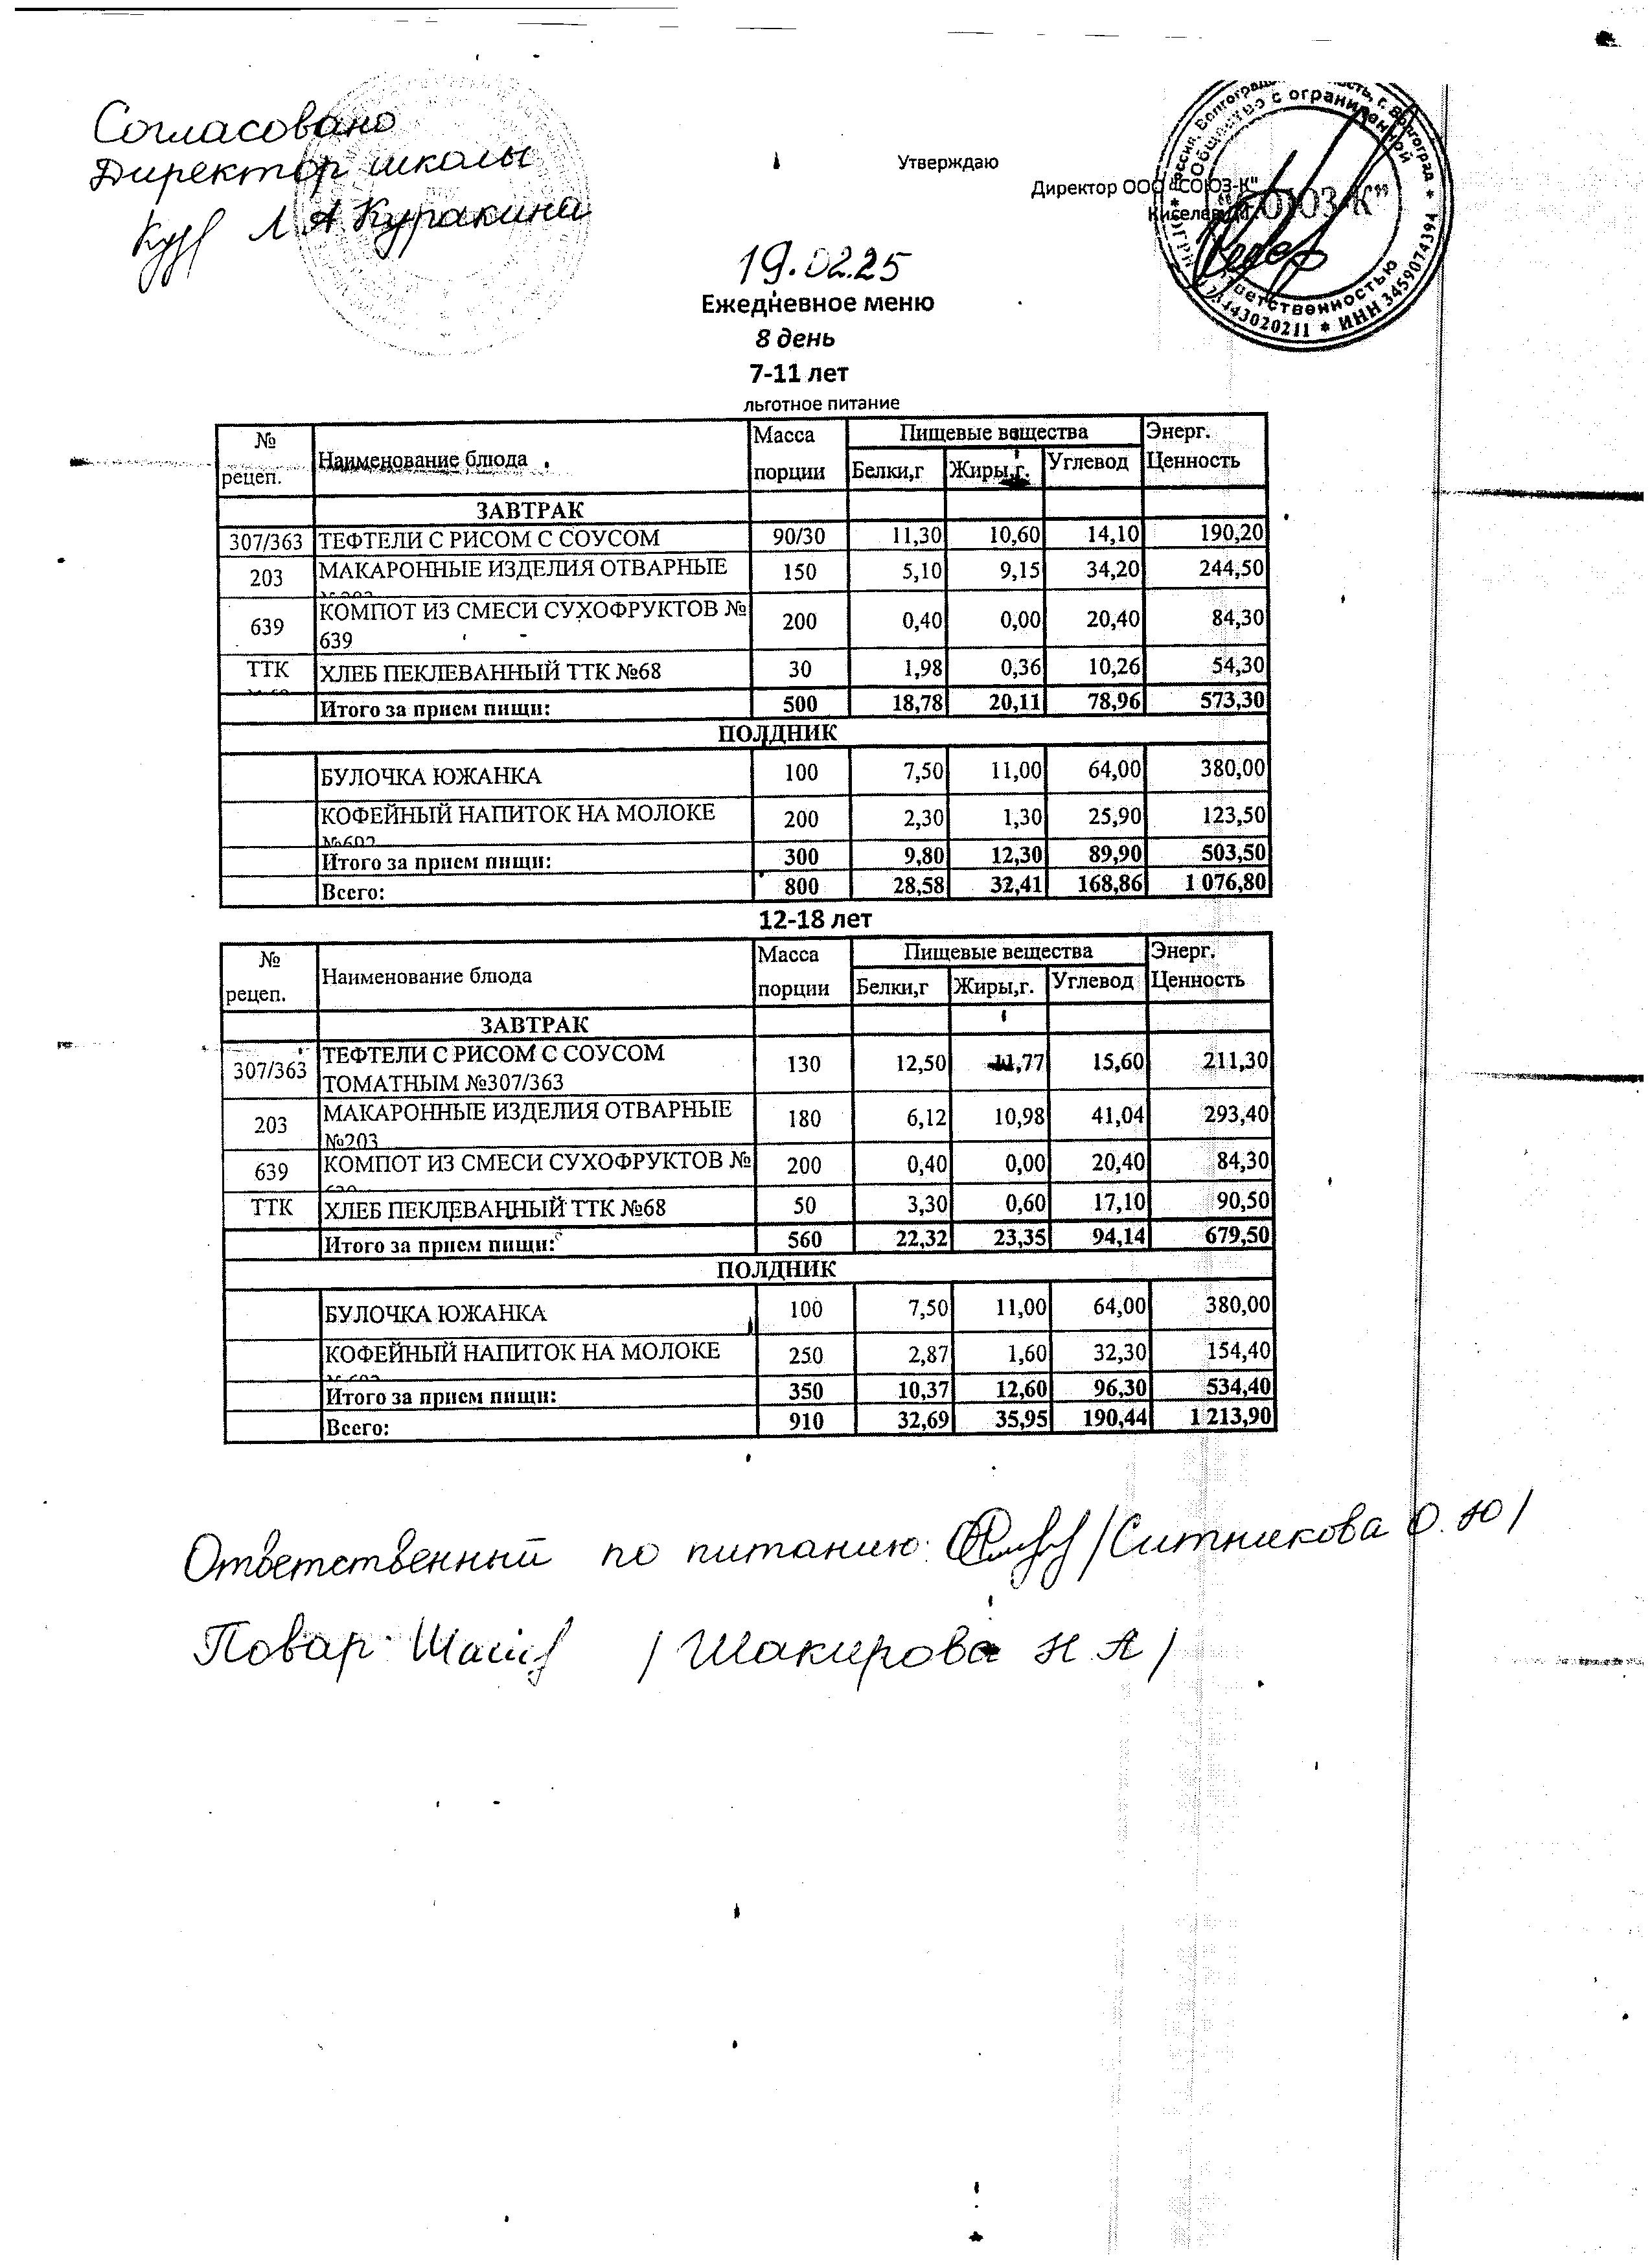 Согласовано
Директор школы
Л А Куракина
Утверждаю
Директор ООО "СОЮЗ-К"
19.02.25
Ежедневное меню
8 день
7-11 лет
льготное питание
№ рецеп. Наименование блюда Масса порции Пищевые вещества Энерг. Ценность
Белки,г Жиры,г. Углевод
ЗАВТРАК
307/363 ТЕФТЕЛИ С РИСОМ С СОУСОМ 90/30 11,30 10,60 14,10 190,20
203 МАКАРОННЫЕ ИЗДЕЛИЯ ОТВАРНЫЕ 150 5,10 9,15 34,20 244,50
639 КОМПОТ ИЗ СМЕСИ СУХОФРУКТОВ № 639 200 0,40 0,00 20,40 84,30
ТТК ХЛЕБ ПЕКЛЕВАННЫЙ ТТК №68 30 1,98 0,36 10,26 54,30
Итого за прием пищи: 500 18,78 20,11 78,96 573,30
ПОЛДНИК
БУЛОЧКА ЮЖАНКА 100 7,50 11,00 64,00 380,00
КОФЕЙНЫЙ НАПИТОК НА МОЛОКЕ 200 2,30 1,30 25,90 123,50
Итого за прием пищи: 300 9,80 12,30 89,90 503,50
Всего: 800 28,58 32,41 168,86 1 076,80
12-18 лет
№ рецеп. Наименование блюда Масса порции Пищевые вещества Энерг. Ценность
Белки,г Жиры,г. Углевод
ЗАВТРАК
307/363 ТЕФТЕЛИ С РИСОМ С СОУСОМ ТОМАТНЫМ №307/363 130 12,50 11,77 15,60 211,30
203 МАКАРОННЫЕ ИЗДЕЛИЯ ОТВАРНЫЕ №203 180 6,12 10,98 41,04 293,40
639 КОМПОТ ИЗ СМЕСИ СУХОФРУКТОВ № 200 0,40 0,00 20,40 84,30
ТТК ХЛЕБ ПЕКЛЕВАННЫЙ ТТК №68 50 3,30 0,60 17,10 90,50
Итого за прием пищи: 560 22,32 23,35 94,14 679,50
ПОЛДНИК
БУЛОЧКА ЮЖАНКА 100 7,50 11,00 64,00 380,00
КОФЕЙНЫЙ НАПИТОК НА МОЛОКЕ 250 2,87 1,60 32,30 154,40
Итого за прием пищи: 350 10,37 12,60 96,30 534,40
Всего: 910 32,69 35,95 190,44 1 213,90
Ответственный по питанию: /Ситникова О. Ю/
Повар: /Шакирова Н А/